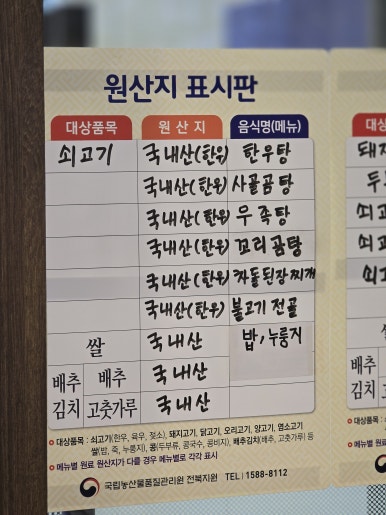 원산지 표시판
대상품목 원산지 음식명(메뉴)
쇠고기 국내산(한우) 한우탕
국내산(한우) 사골곰탕
국내산(한우) 우족탕
국내산(한우) 꼬리곰탕
국내산(한우) 차돌된장찌개
국내산(한우) 불고기전골
쌀 국내산 밥,누룽지
배추김치 배추 국내산
고춧가루 국내산
대상품목 : 쇠고기(한우, 육우, 젖소), 돼지고기, 닭고기, 오리고기, 양고기, 염소고기
쌀(밥, 죽, 누룽지), 콩(두부류, 콩국수, 콩비지), 배추김치(배추, 고춧가루) 등
메뉴별 원료 원산지가 다를 경우 메뉴별로 각각 표시
국립농산물품질관리원 전북지원 TEL 1588-8112
대상
돼지
두
쇠고
쇠고
쇠고